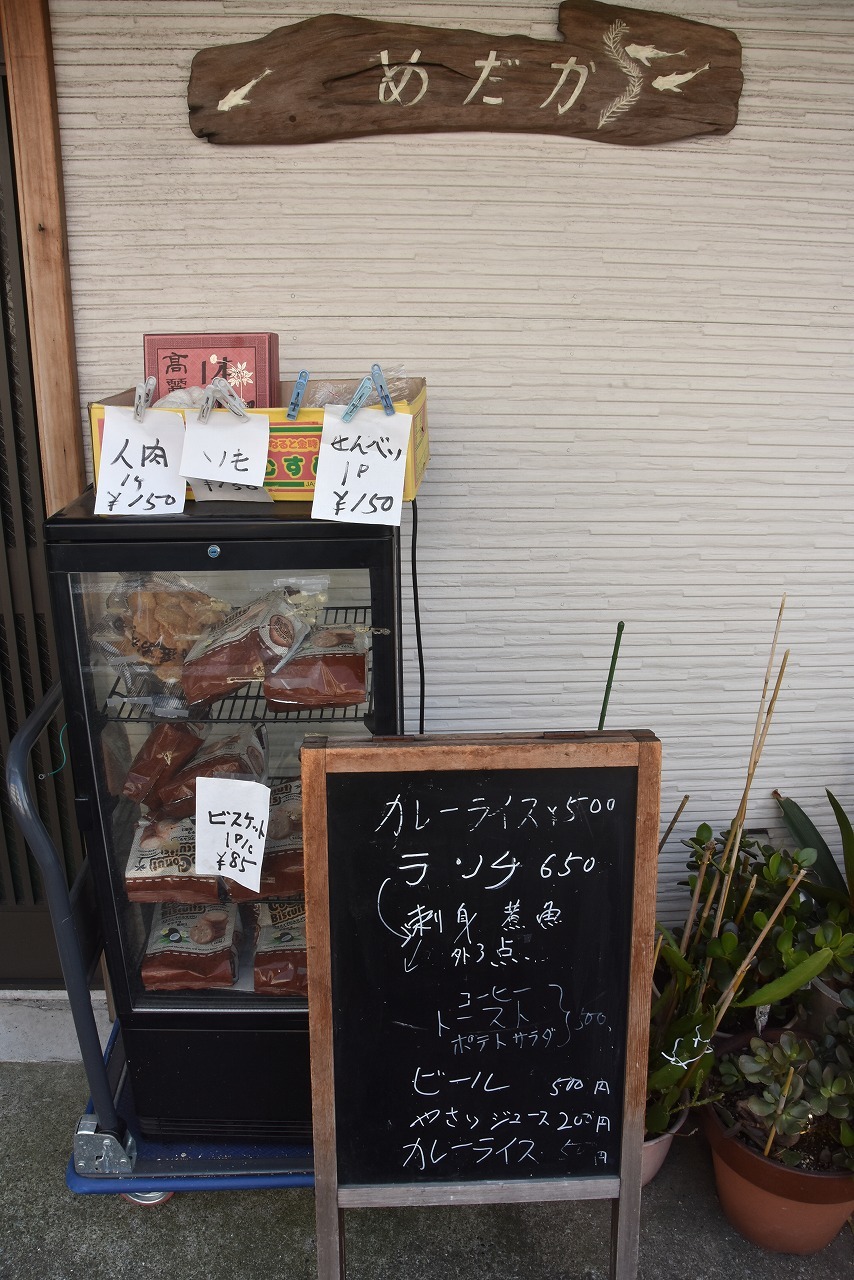 めだか
高麗
人肉
1ケ
¥150
いも
¥150
せんべい
1P
¥150
ビスケット
1P/c
¥85
カレーライス ¥500
ランチ 650
刺身 煮魚
外3点...
コーヒー
トースト
ポテトサラダ
500
ビール 500円
やさいジュース 200円
カレーライス
円